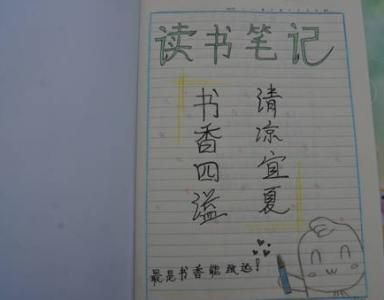 读书笔记
清凉宜夏
书香四溢
最是书香能致远！